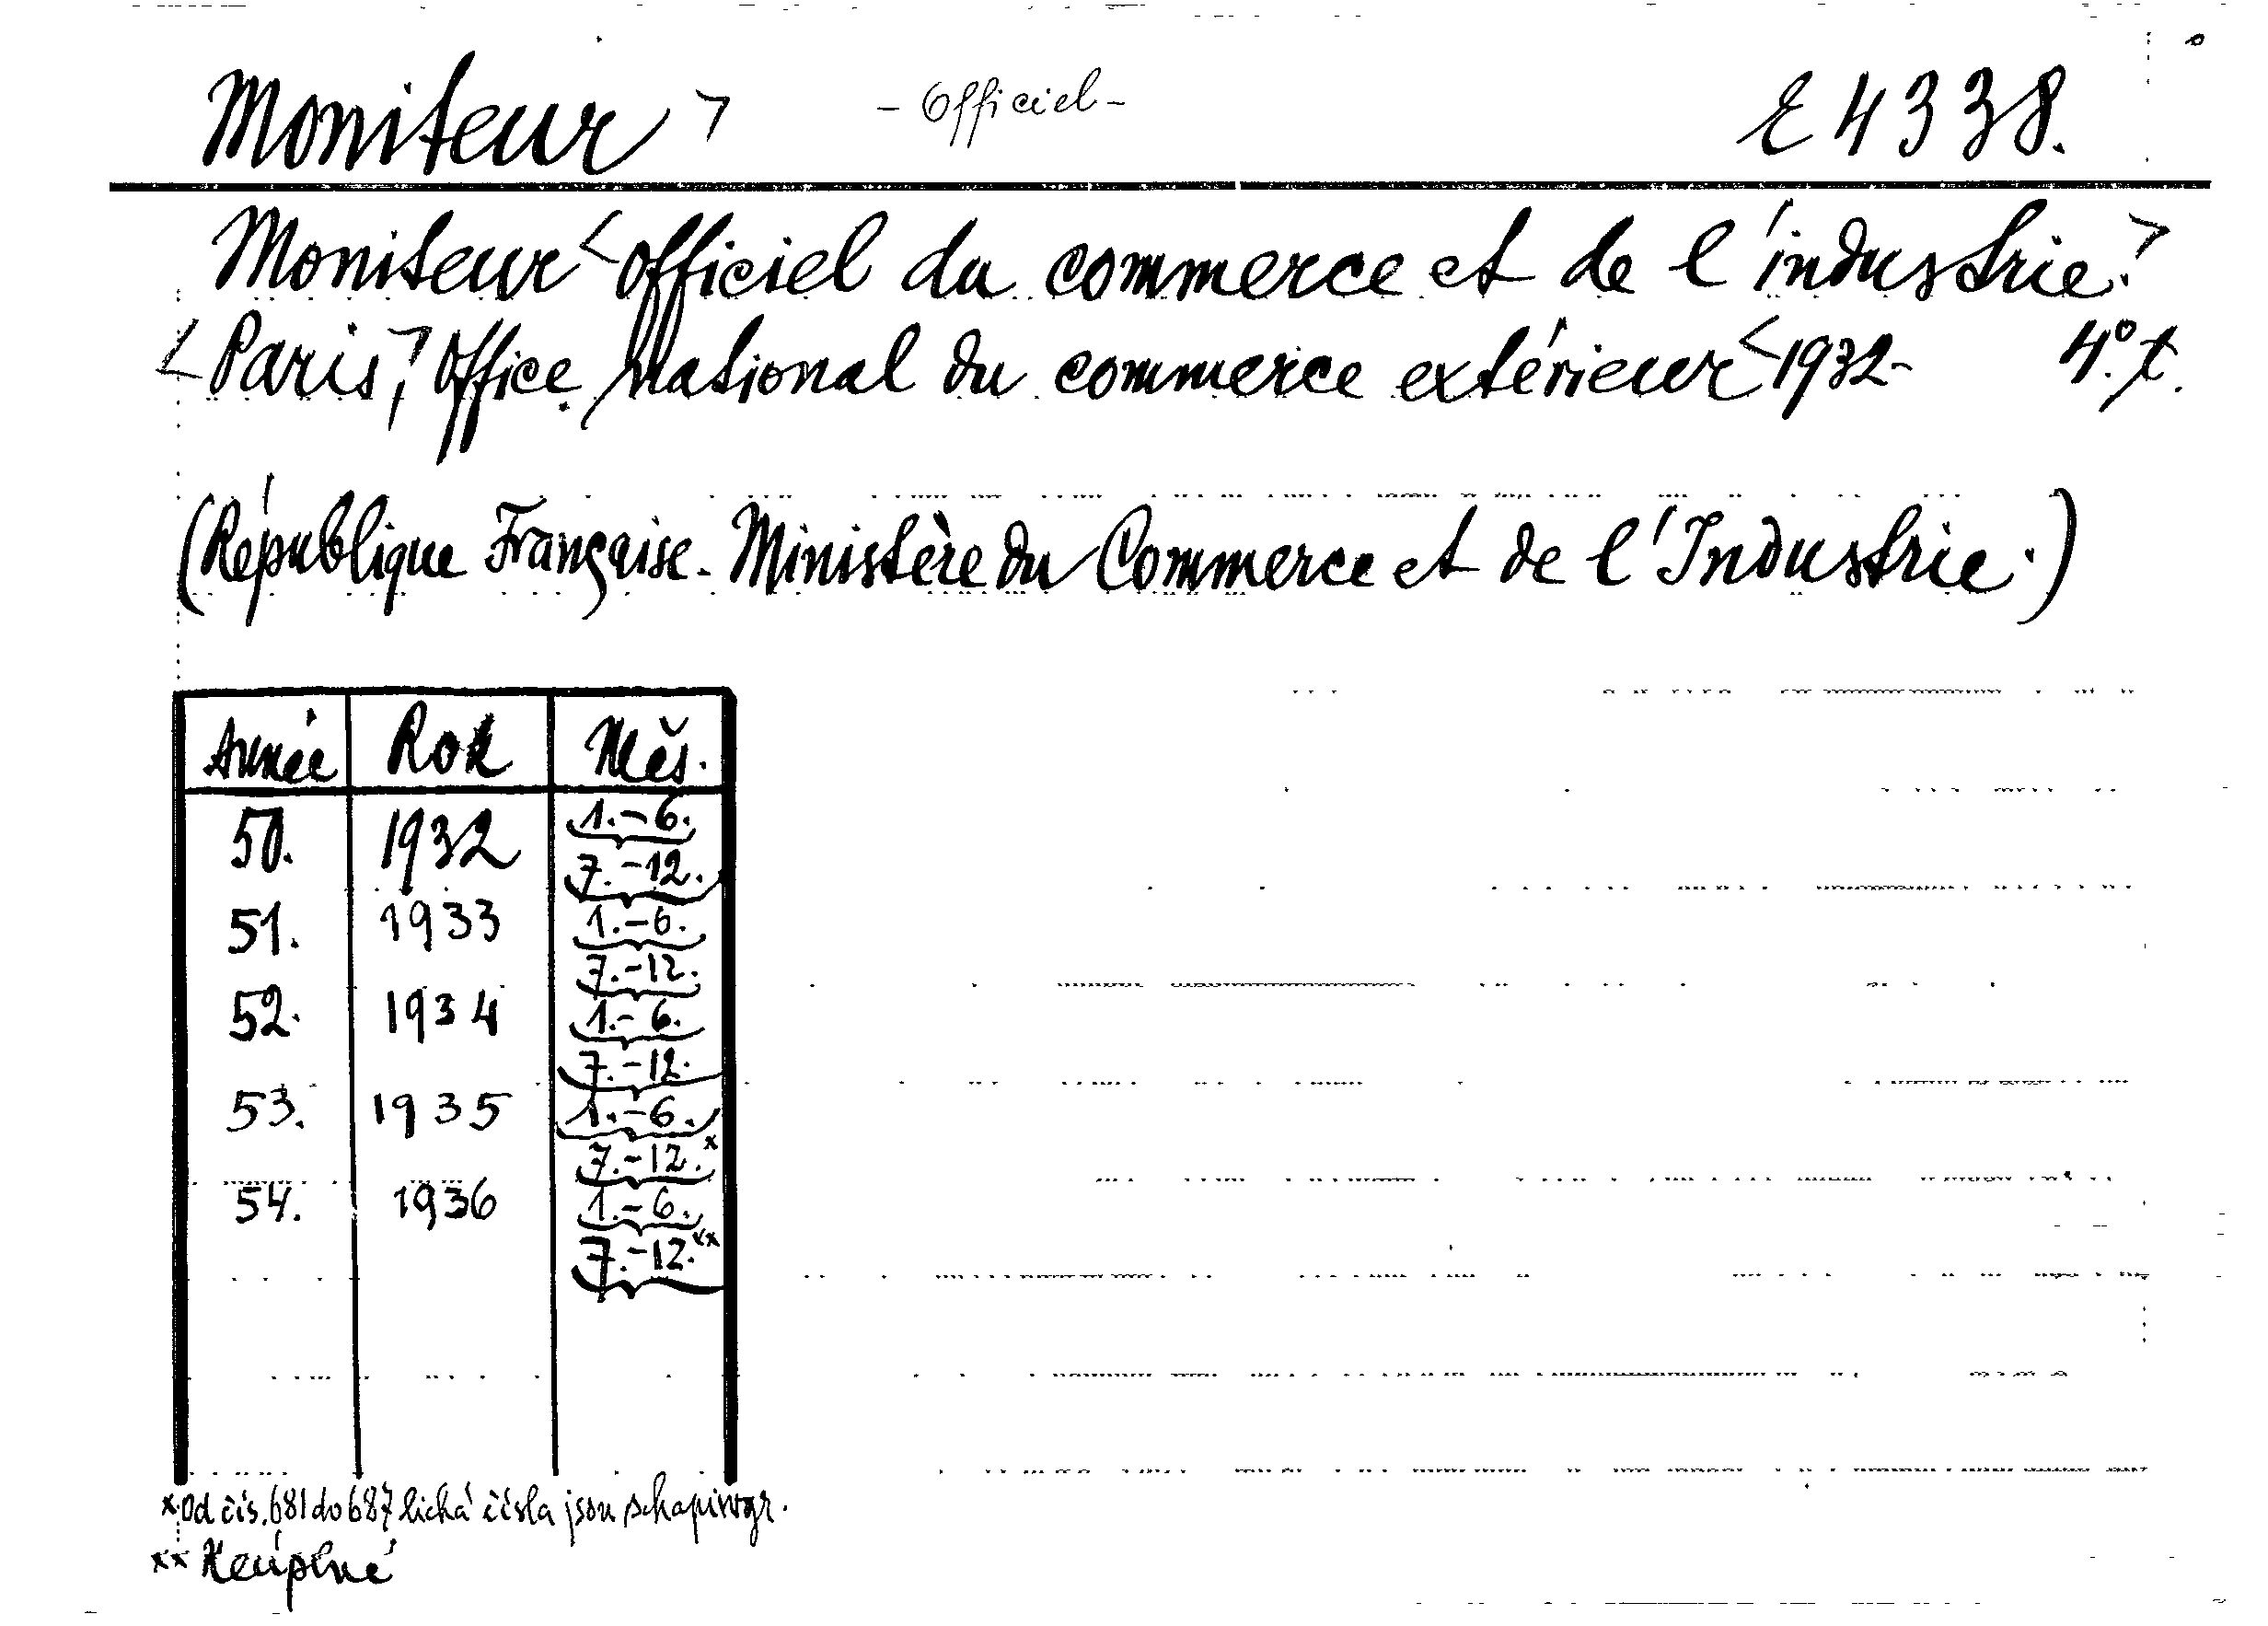 Moniteur > - Officiel - E 4338.
Moniteur < officiel du commerce et de l'industrie. >
< Paris, > Office National du commerce extérieur < 1932- 4°. t.
(République Française. Ministère du Commerce et de l'Industrie.)
Année Rok Měs.
50. 1932 1.-6.
7.-12.
51. 1933 1.-6.
7.-12.
52. 1934 1.-6.
7.-12.
53. 1935 1.-6.
7.-12.x
54. 1936 1.-6.
7.-12.xx
x Od čís. 681 do 687 lichá čísla jsou schapirogr.
xx Neúplné